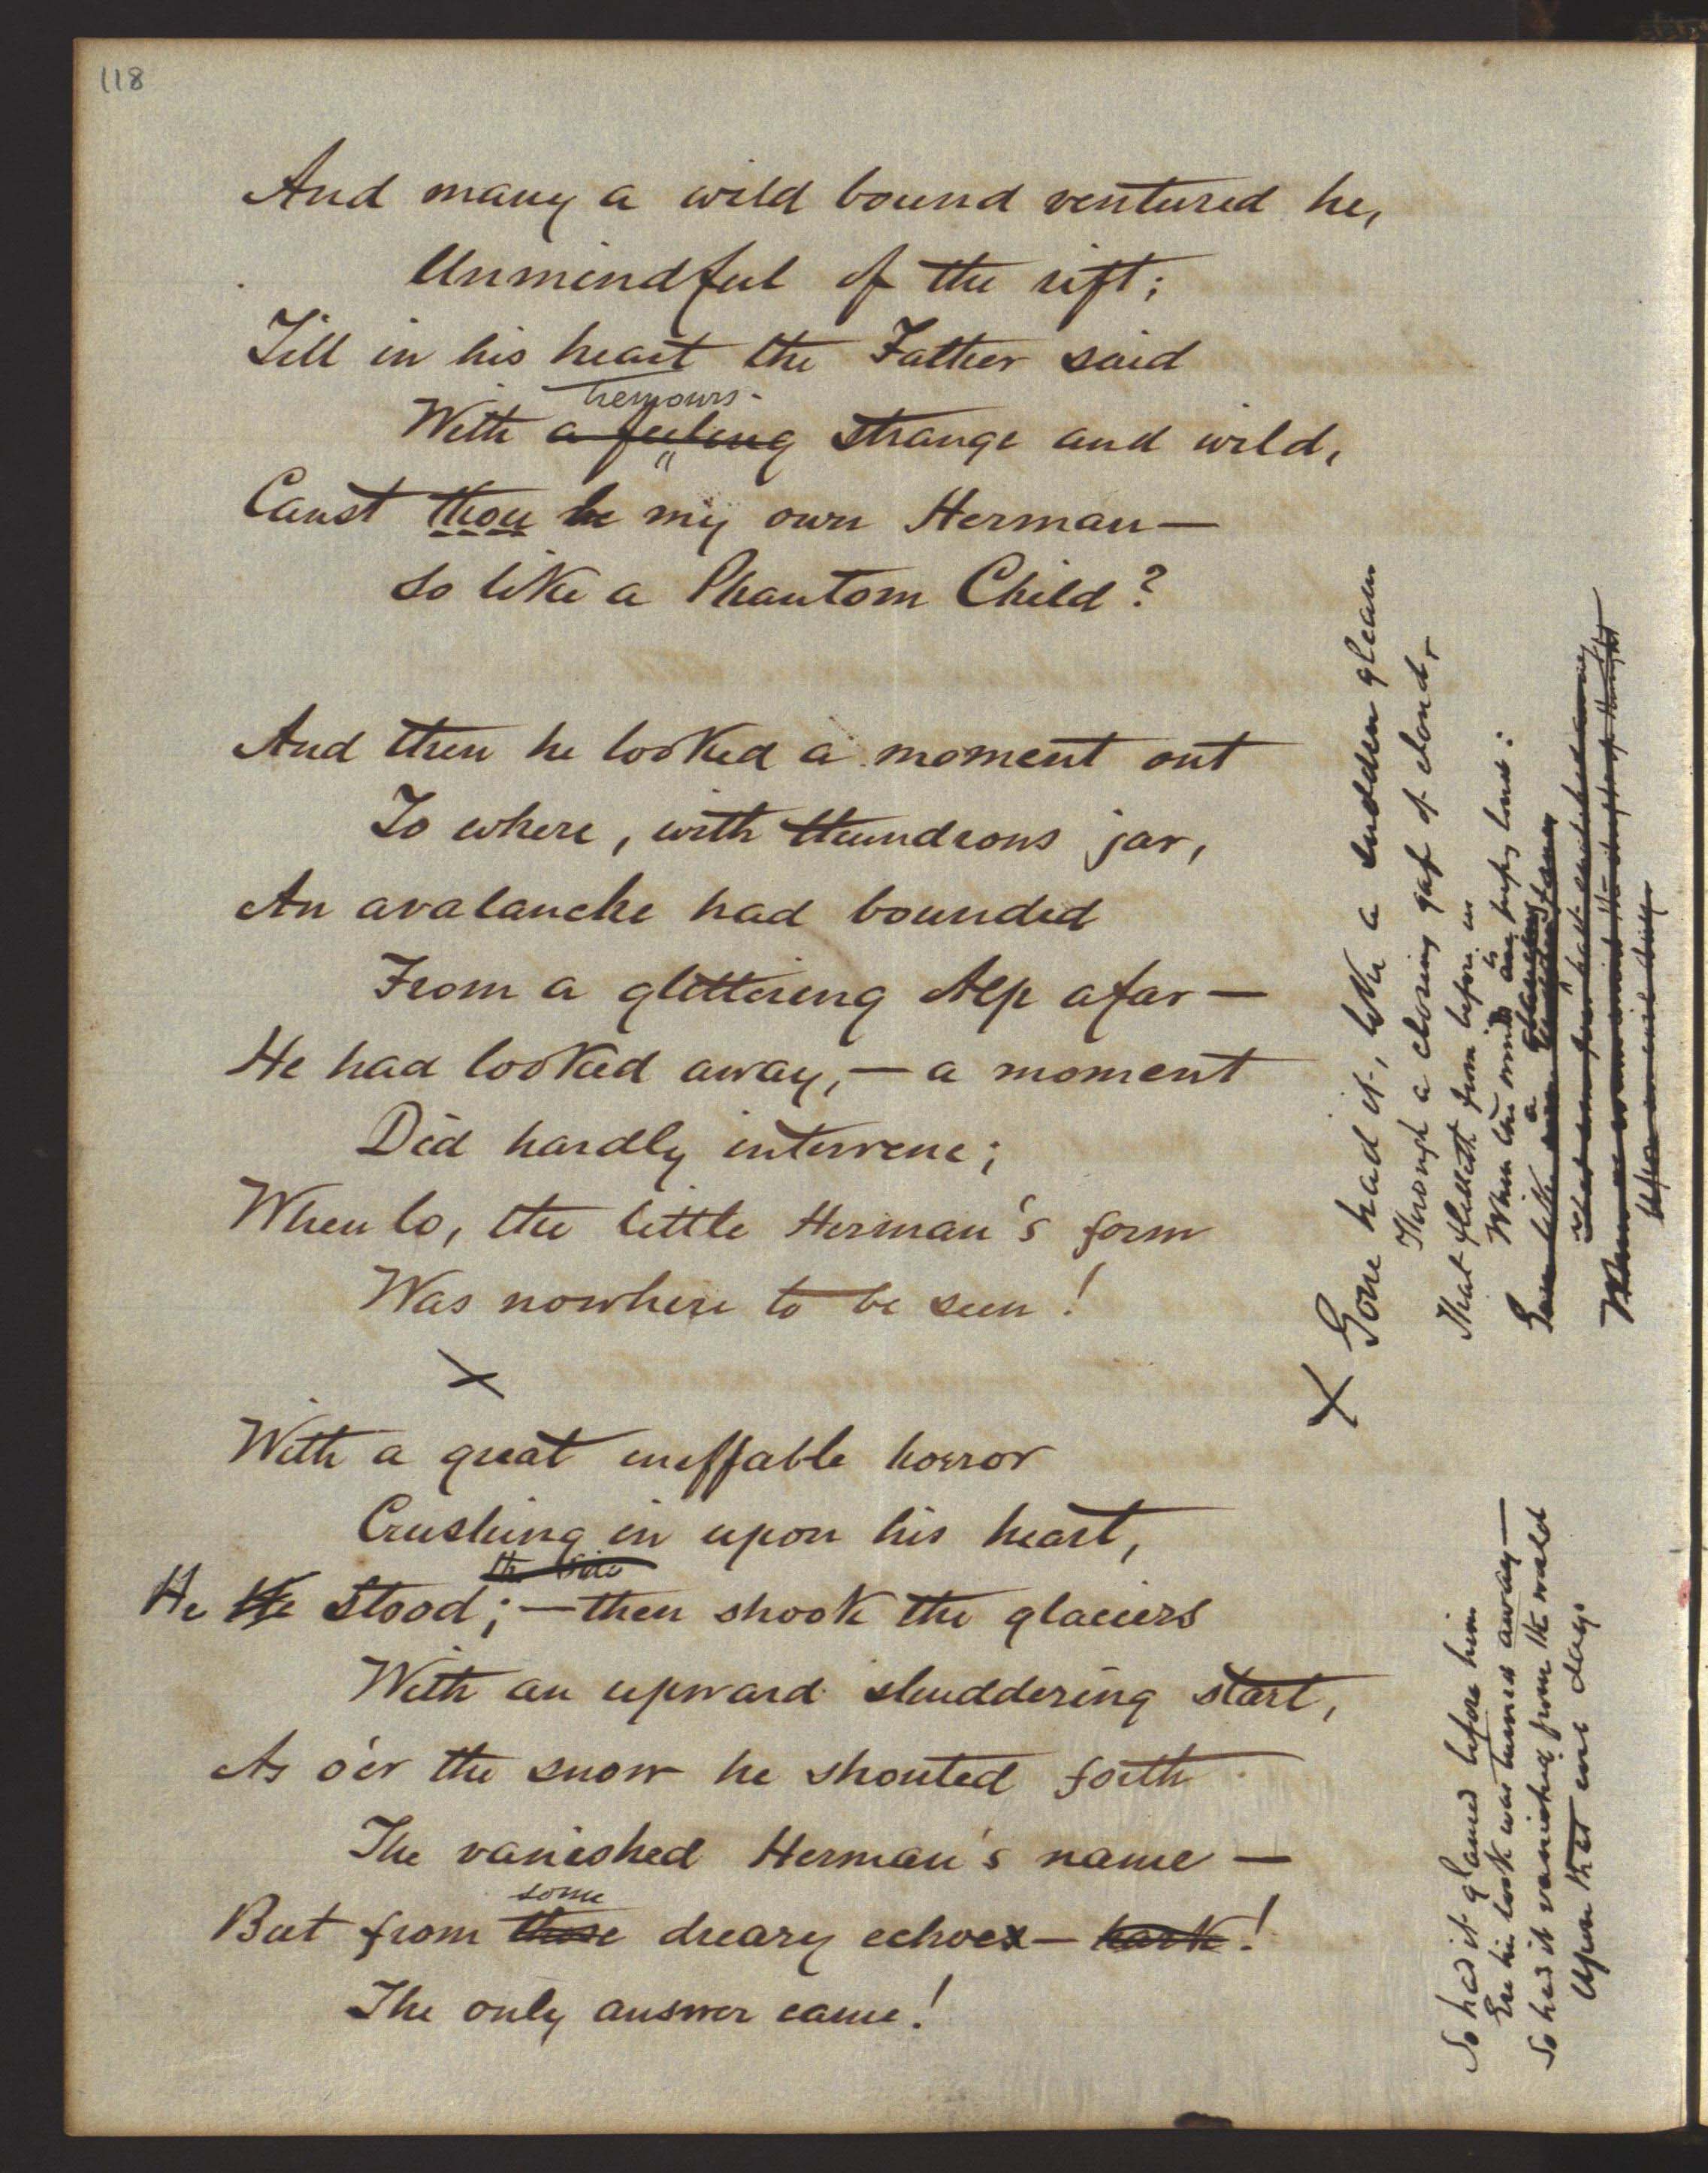 118
And many a wild bound ventured he,
Unmindful of the rift;
Till in his heart the Father said
tremours
With a feeling strange and wild,
Canst thou be my own Herman—
So like a Phantom Child?
And then he looked a moment out
To where, with thundrous jar,
An avalanche had bounded
From a glittering Alp afar—
He had looked away,— a moment
Did hardly intervene;
When lo, the little Herman's form
Was nowhere to be seen!
X
With a great ineffable horror
Crushing in upon his heart,
the
He He stood;—then shook the glaciers
With an upward shuddering start,
As o'er the snow he shouted forth
The vanished Herman's name—
some
But from those dreary echoes— hark!
The only answer came!
X Gone had it, like a sudden gleam
Through a closing gap of cloud,
That fleeteth from before us
When the winds are piping loud:
a
Gone like
When we
Upon
So had it glanced before him
Ere his look was turned away—
So had it vanished from the world
Upon that one day.